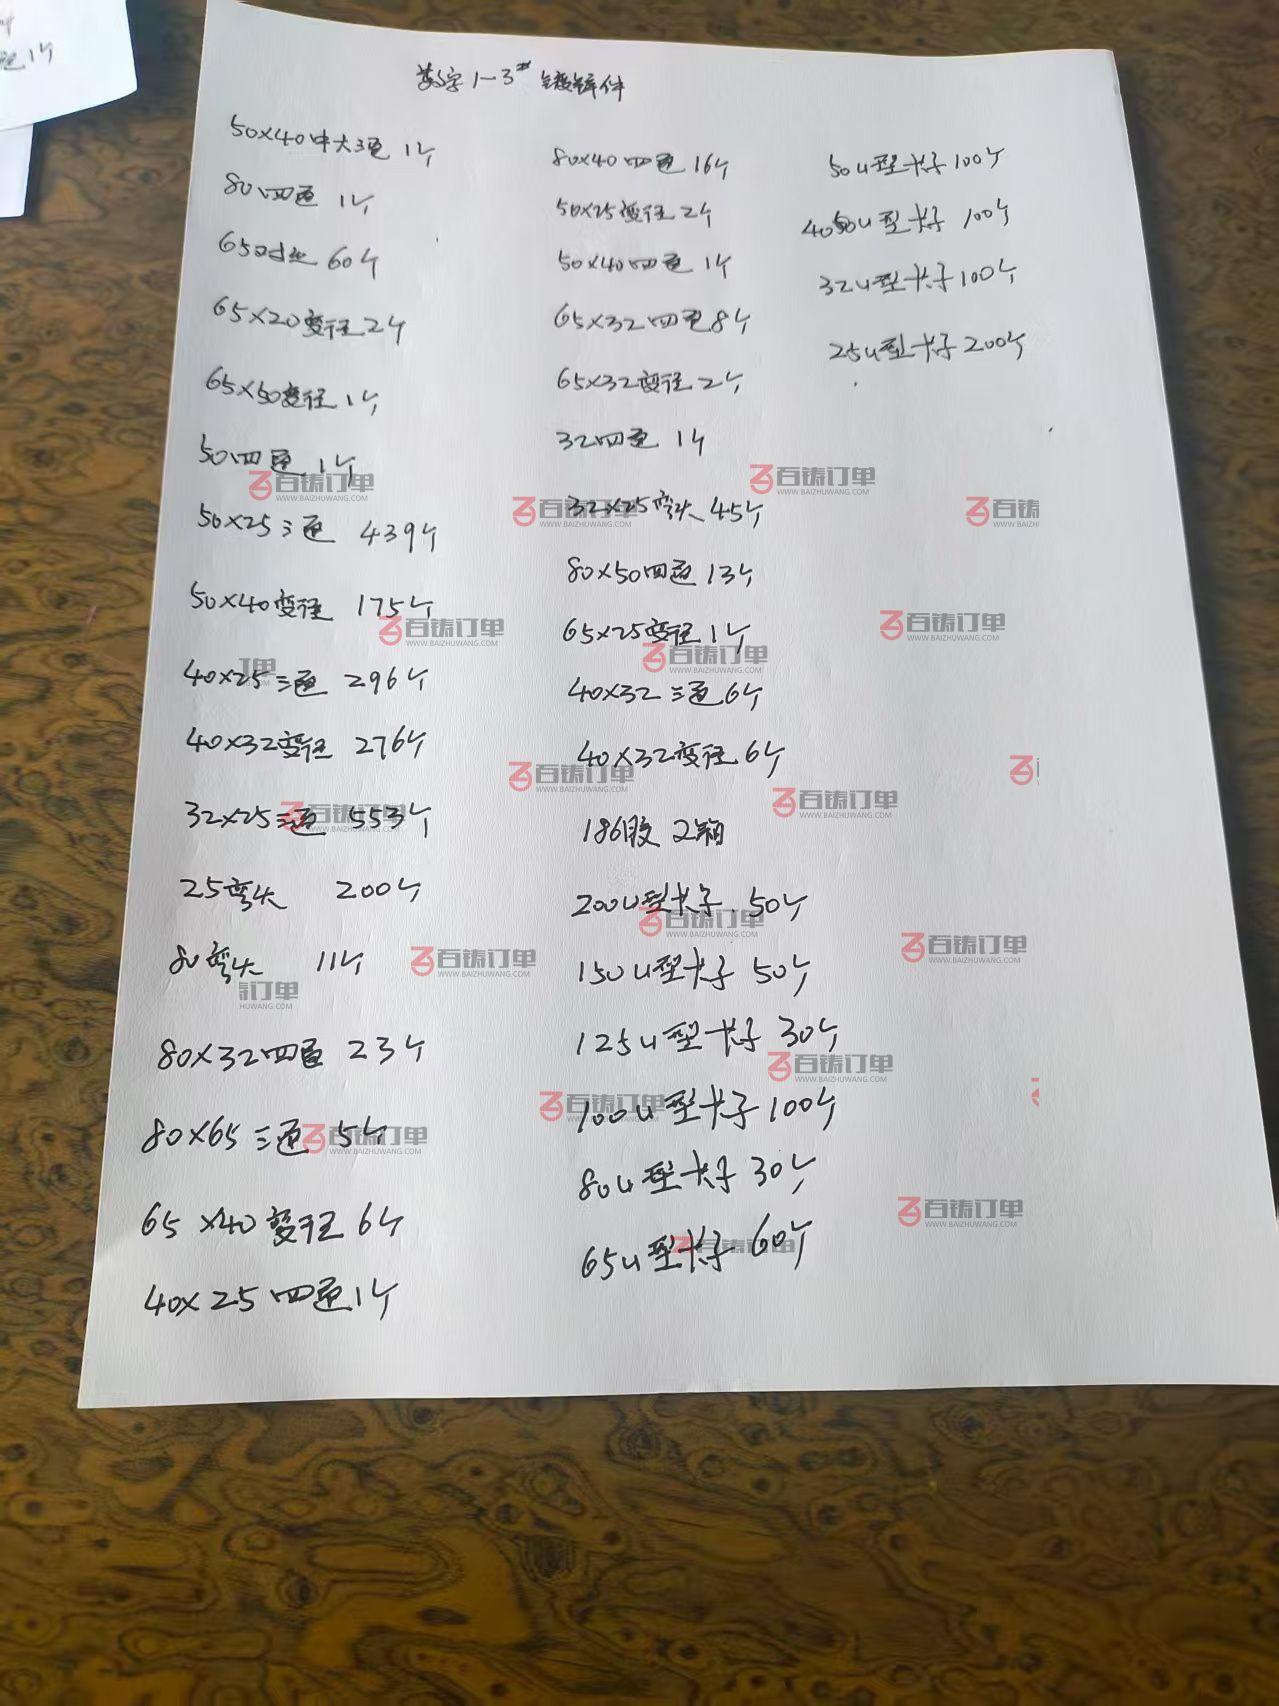 通1个
数字1-3# 镀锌件
50×40中大三通 1个
80四通 1个
65对丝 60个
65×20变径2个
65×50变径1个
50四通 1个
50×25三通 439个
50×40变径 175个
40×25三通 296个
40×32变径 276个
32×25三通 553个
25弯头 200个
80弯头 11个
80×32四通 23个
80×65三通 5个
65×40变径 6个
40×25四通1个
80×40四通 16个
50×25变径 2个
50×40四通 1个
65×32四通8个
65×32变径 2个
32四通 1个
32×25弯头 45个
80×50四通 13个
65×25变径1个
40×32三通6个
40×32变径 6个
186胶 2箱
200U型卡子 50个
150U型卡子 50个
125U型卡子 30个
100U型卡子 100个
80U型卡子 30个
65U型卡子 60个
50U型卡子 100个
40U型卡子 100个
32U型卡子100个
25U型卡子 200个
百铸订单
WWW.BAIZHUWANG.COM